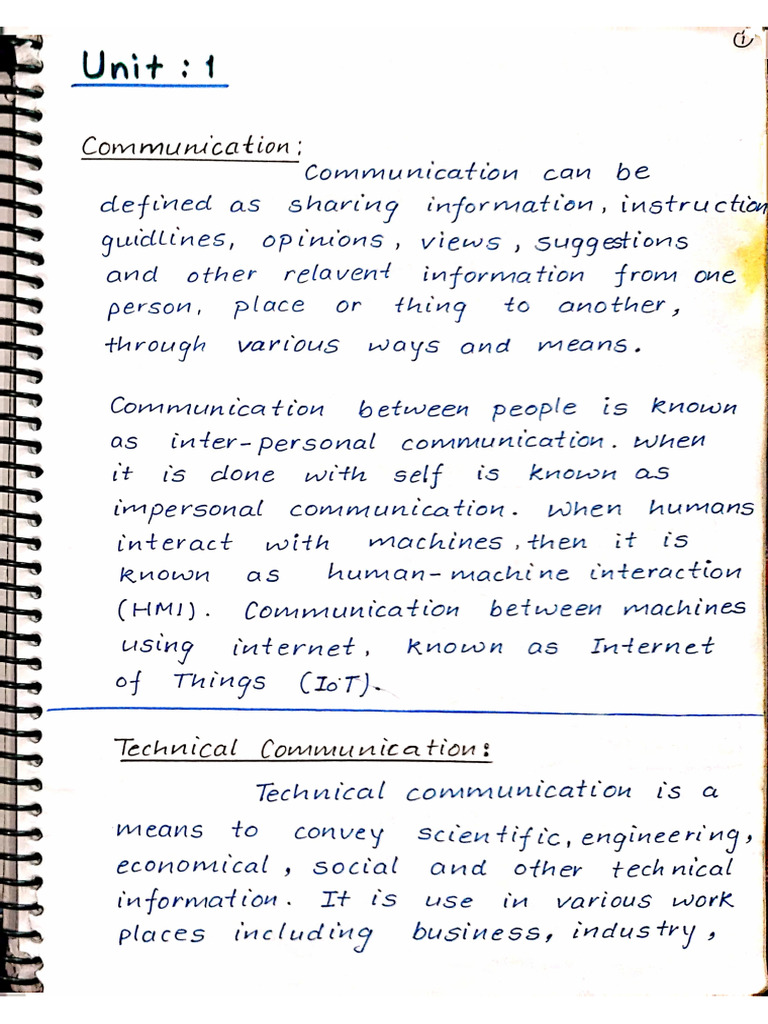 1
Unit : 1
Communication:
Communication can be
defined as sharing information, instruction
guidlines, opinions, views, suggestions
and other relavent information from one
person, place or thing to another,
through various ways and means.
Communication between people is known
as inter-personal communication. When
it is done with self is known as
impersonal communication. When humans
interact with machines, then it is
known as human-machine interaction
(HMI). Communication between machines
using internet, known as Internet
of Things (IoT).
Technical Communication:
Technical communication is a
means to convey scientific, engineering,
economical, social and other technical
information. It is use in various work
places including business, industry,